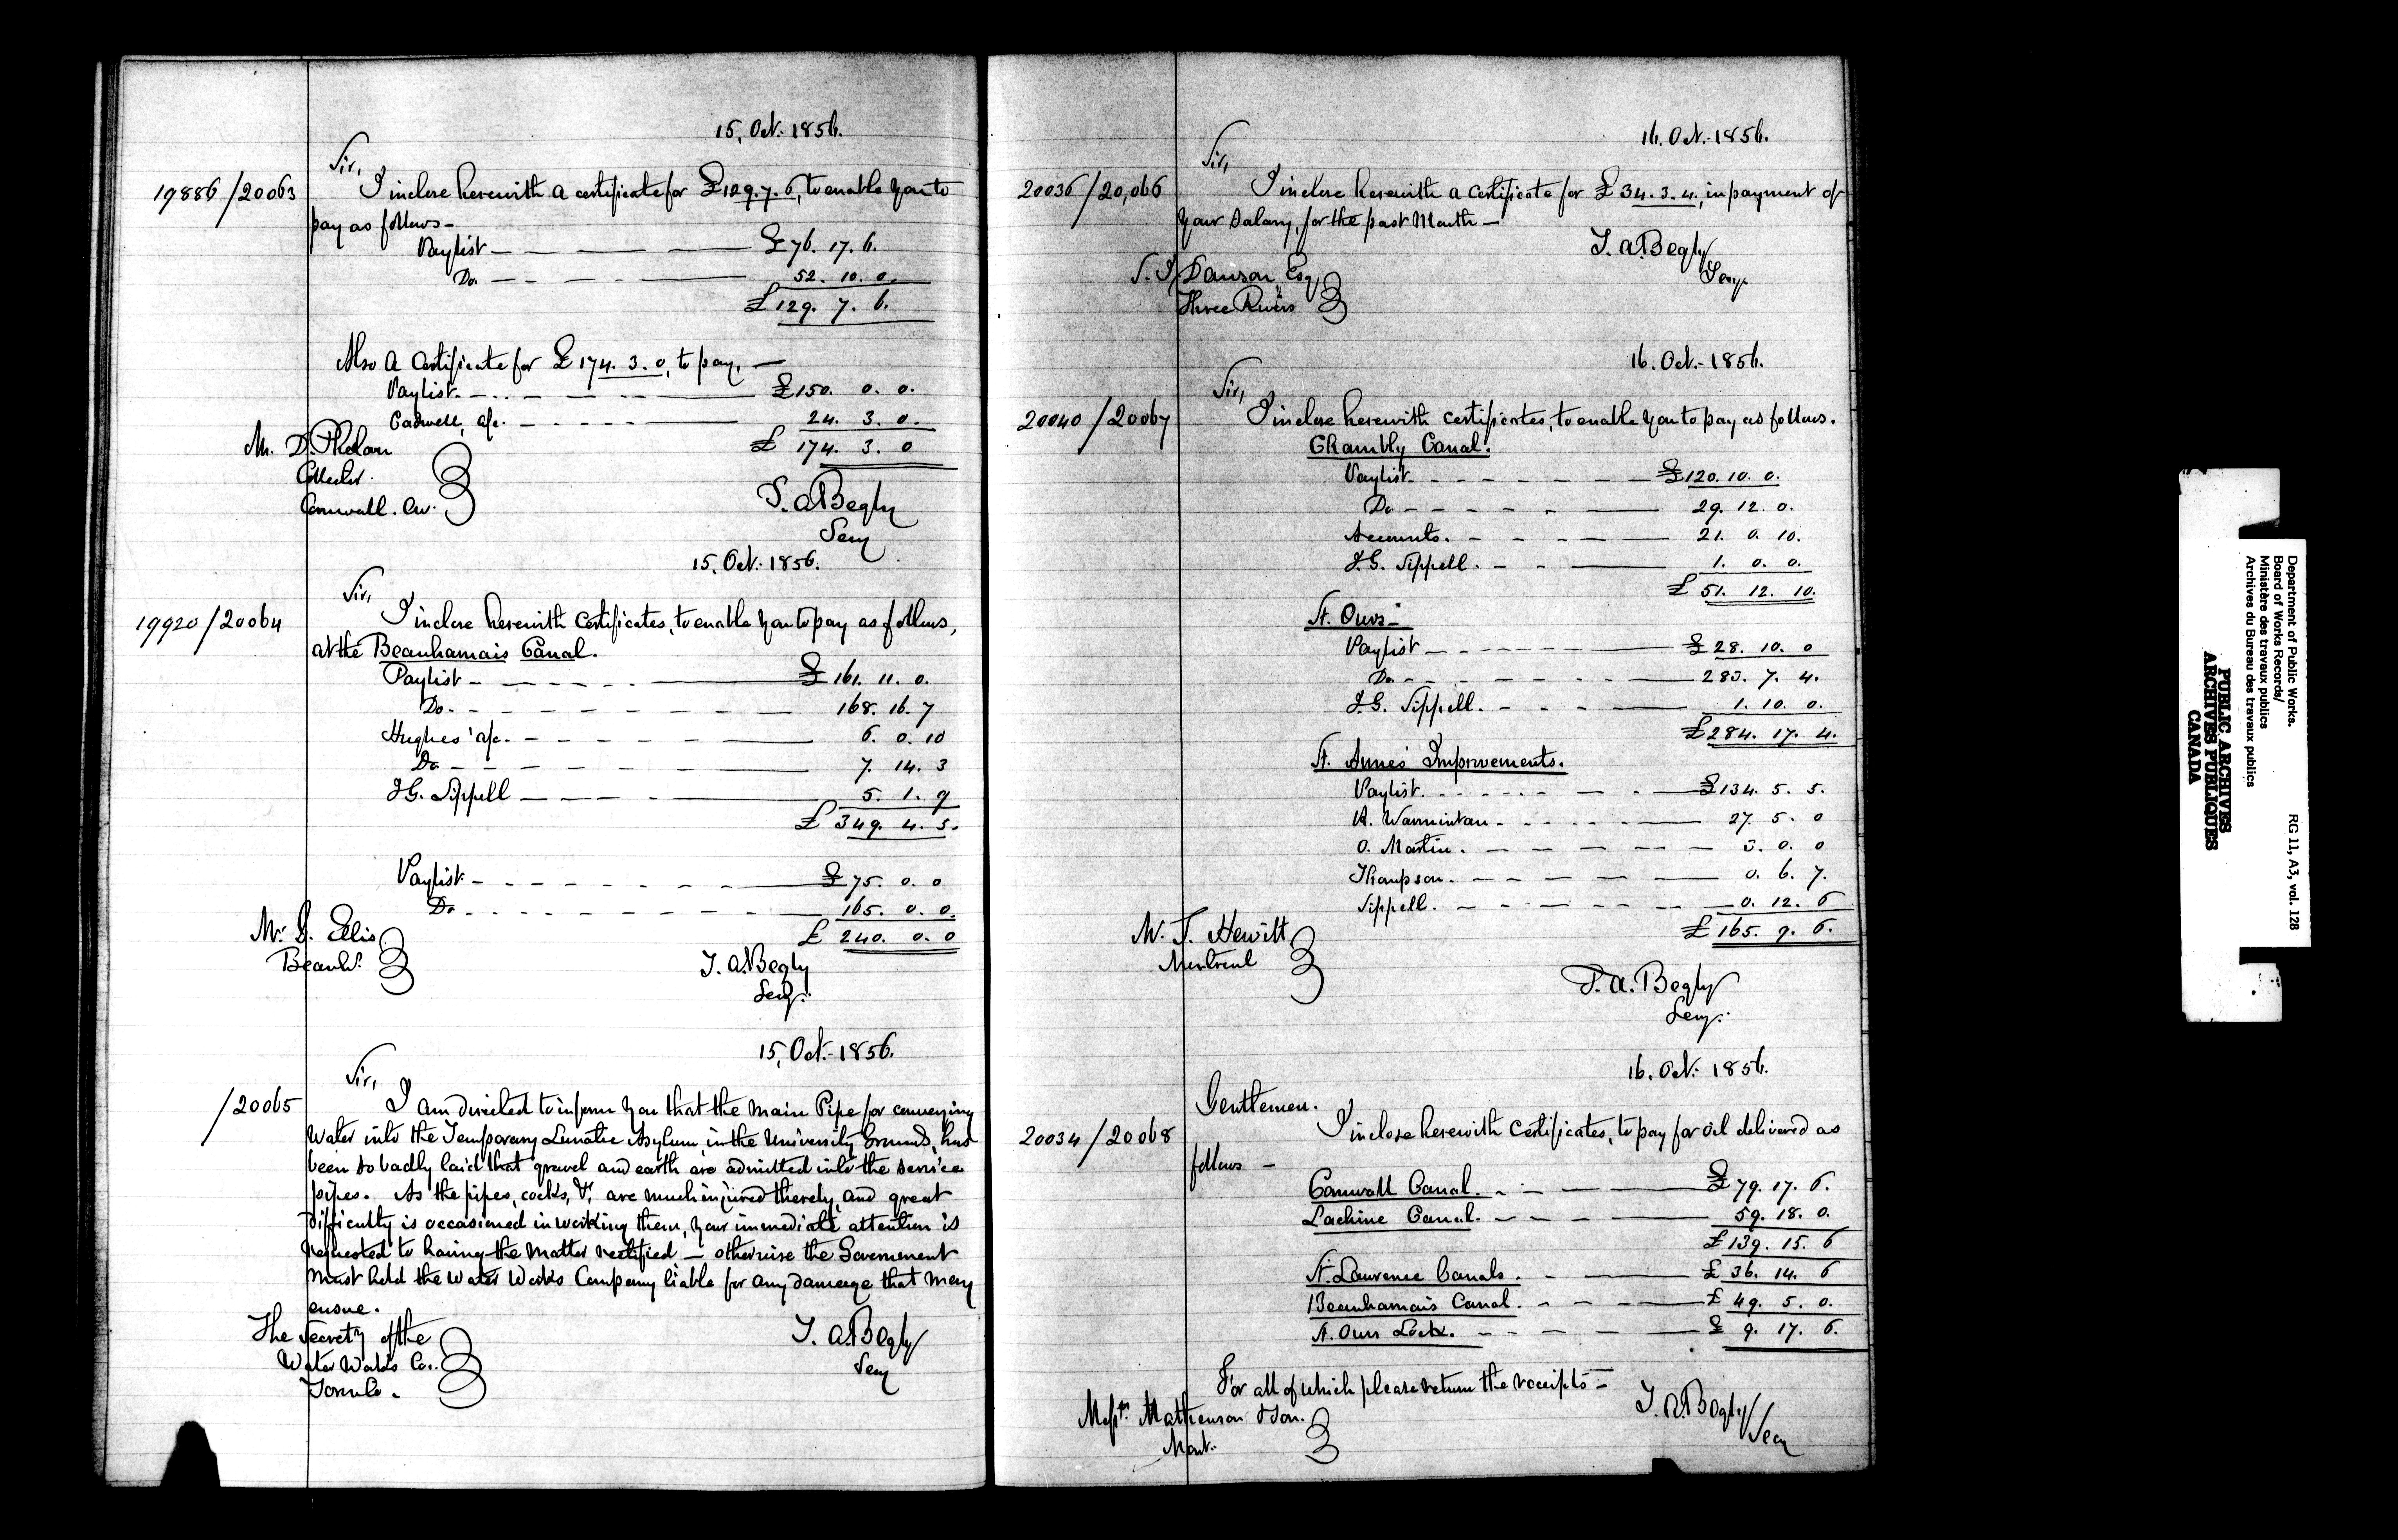 15, Oct. 1856.
Sir,
19886/20063
I inclose herewith a certificate for £129.7.6, to enable you to
pay as follows —
Paylist — £76. 17. 6.
Do. — 52. 10. 0.
£129. 7. 6.
Also a Certificate for £174. 3. 0, to pay, —
Paylist. — £150. 0. 0.
Cadwell, a/c. — 24. 3. 0.
£ 174. 3. 0
Mr. D. Phelan
Collector
Cornwall. C.W.
T. A. Begly
Secy
15, Oct. 1856.
Sir,
19920/20064
I inclose herewith Certificates, to enable you to pay as follows,
at the Beauharnais Canal.
Paylist — £ 161. 11. 0.
Do. — 168. 16. 7
Hughes' a/c. — 6. 0. 10
Do — 7. 14. 3
J.G. Sippell — 5. 1. 9
£ 349. 4. 5.
Paylist — £ 75. 0. 0
Do — 165. 0. 0.
£ 240. 0. 0
Mr. Ellis
Beauhs.
T. A. Begly
Secy.
15, Oct. 1856.
Sir,
/20065
I am directed to inform you that the main Pipe for conveying
Water into the Temporary Lunatic Asylum, in the University Grounds, has
been so badly laid that gravel and earth are admitted into the service
pipes. As the pipes, cocks, &c, are much injured thereby, and great
difficulty is occasioned in working them, your immediate attention is
requested to having the matter rectified — otherwise the Government
must hold the Water Works Company liable for any damage that may
ensue.
The Secrety of the
Water Works Co.
Toronto.
T. A. Begly
Secy
16. Oct. 1856.
Sir,
20036/20,066
I inclose herewith a Certificate for £ 34. 3. 4., in payment of
your Salary, for the past Month —
T. A. Begly
Secy.
Dawson, Esq
Three Rivers
16. Oct. 1856.
Sir,
20040/20067
I inclose herewith certificates, to enable you to pay as follows.
Chambly Canal.
Paylist. — £120. 10. 0.
Do — 29. 12. 0.
Accounts. — 21. 0. 10.
J.G. Sippell. — 1. 0. 0.
£ 51. 12. 10.
St. Ours —
Paylist — £ 28. 10. 0
Do. — 283. 7. 4.
J.G. Sippell. — 1. 10. 0.
£284. 17. 4.
St. Anne's Improvements.
Paylist. — £134. 5. 5.
R. Warminton — 27. 5. 0
O. Martin. — 3. 0. 0
Thompson. — 0. 6. 7.
Sippell. — 0. 12. 6
£ 165. 9. 6.
Mr. J. Hewitt
Montreal
T. A. Begly
Secy.
16. Oct. 1856.
Gentlemen.
20034/20068
I inclose herewith Certificates, to pay for oil delivered as
follows —
Cornwall Canal. — £ 79. 17. 6.
Lachine Canal. — 59. 18. 0.
£ 139. 15. 6
St. Lawrence Canals. — £ 36. 14. 6
Beauharnais Canal. — £ 49. 5. 0.
St. Ours Lock. — £ 9. 17. 6.
For all of which please return the receipts —
Messrs. Mathewson & Son.
Mont.
T. A. Begly/Secy
Department of Public Works.
Board of Works Records/
Ministère des travaux publics
Archives du Bureau des travaux publics
RG 11, A3, vol. 128
PUBLIC ARCHIVES
ARCHIVES PUBLIQUES
CANADA